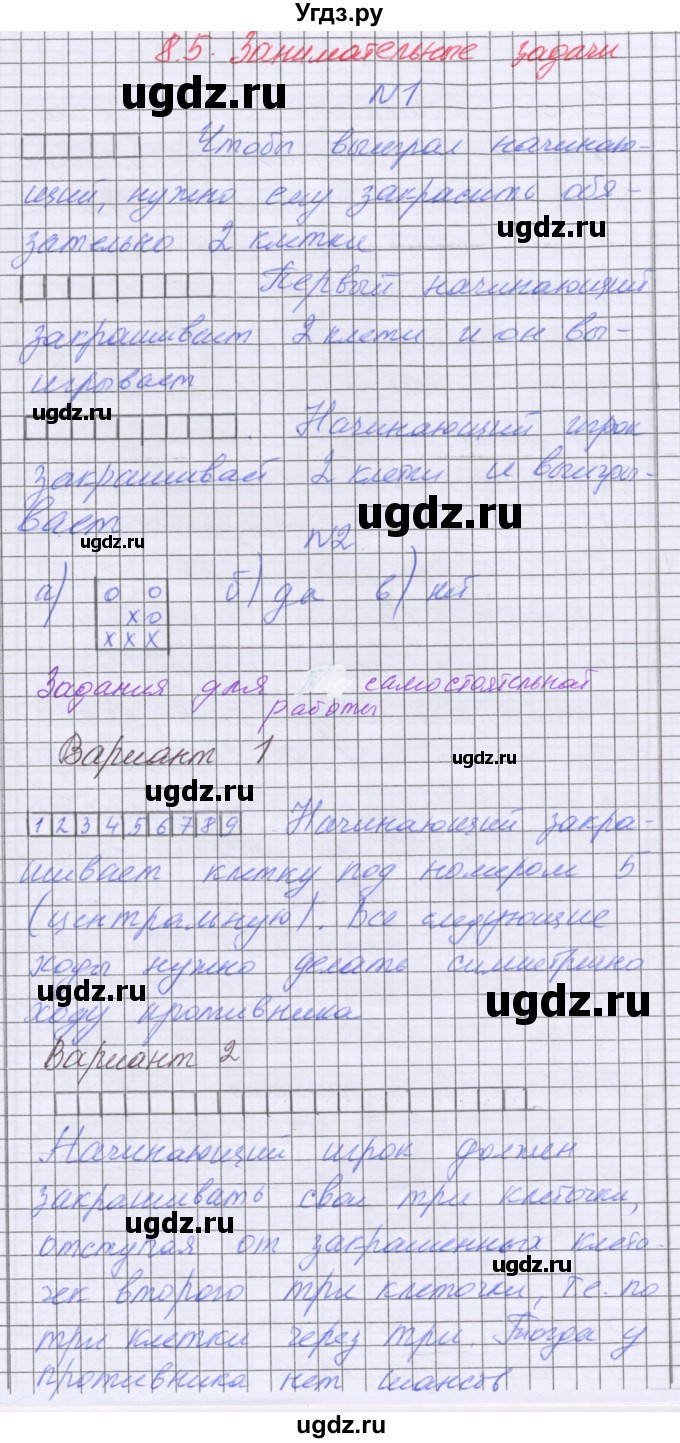 Угдз.ру
8.5. Занимательные задачи
ugdz.ru
N1
Чтобы выиграл начинаю-
щий, нужно ему закрасить обя-
ugdz.ru
зательно 2 клетки
Первый начинающий
закрашивает 2 клетки и он вы-
игрывает
ugdz.ru
Начинающий игрок
закрашивает 2 клетки и выигры-
вает
ugdz.ru
ugdz.ru
N2
а) б) да в) нет
о о
х о
х х х
Задания для самостоятельной
работы
Вариант 1
ugdz.ru
ugdz.ru
1 2 3 4 5 6 7 8 9 Начинающий закра-
шивает клетку под номером 5
(центральную). Все следующие
ходы нужно делать симметрично
ugdz.ru
ugdz.ru
ходу противника
Вариант 2
Начинающий игрок должен
закрашивать свои три клеточки,
ugdz.ru
отступая от закрашенных клето-
ugdz.ru
чек второго три клеточки, т.е. по
три клетки через три. Тогда у
противника нет шансов
ugdz.ru